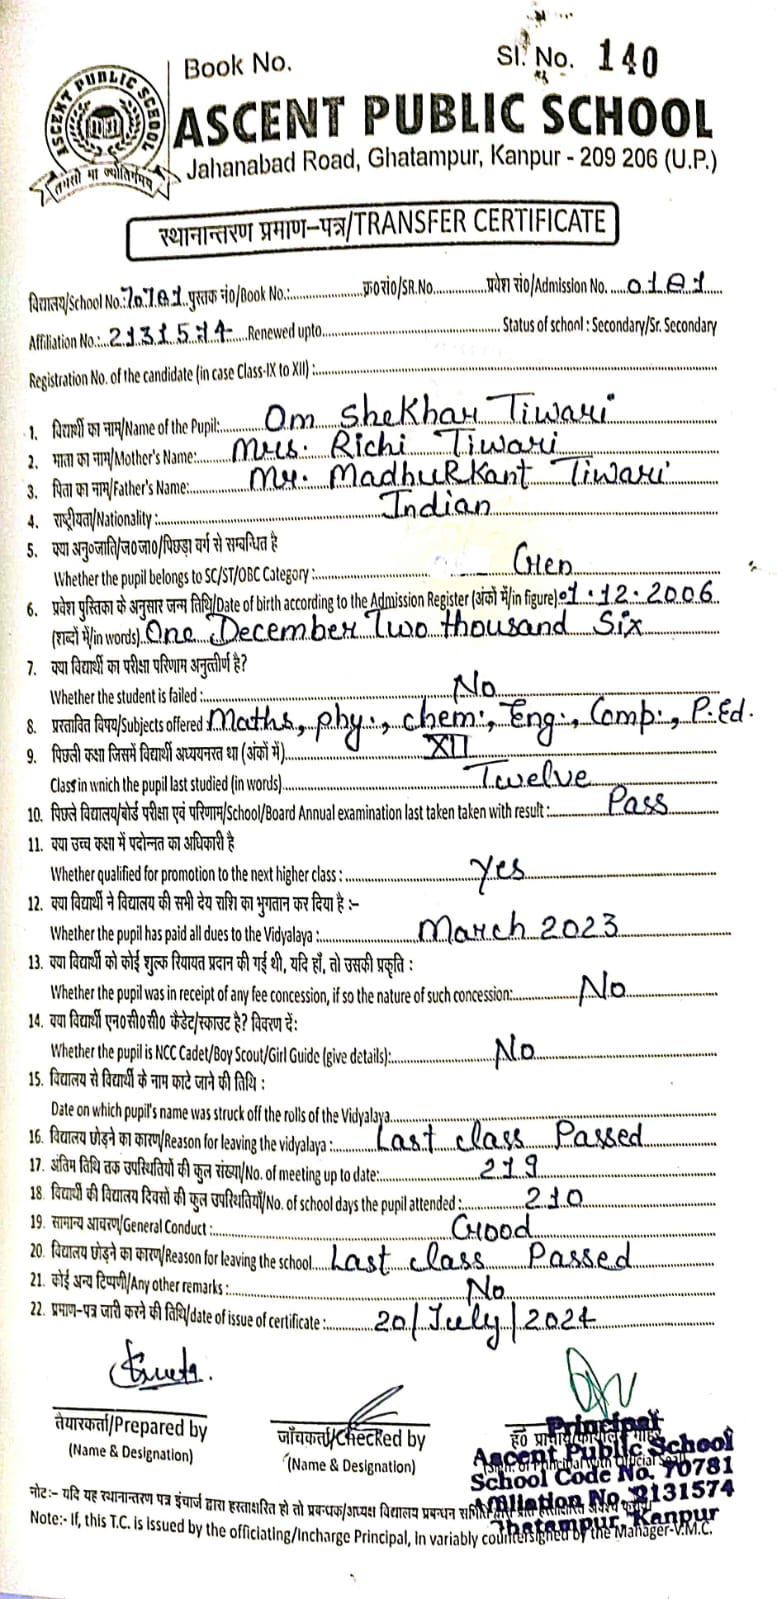 Book No.
Sl. No. 140
ASCENT PUBLIC SCHOOL
तमसो मा ज्योतिर्गमय
ASCENT PUBLIC SCHOOL
Jahanabad Road, Ghatampur, Kanpur - 209 206 (U.P.)
स्थानान्तरण प्रमाण-पत्र/TRANSFER CERTIFICATE
विद्यालय/School No.: 70781 पुस्तक नं०/Book No.: क्र०सं०/SR.No. प्रवेश सं०/Admission No. 0181
Affiliation No.: 2131574 Renewed upto Status of school : Secondary/Sr. Secondary
Registration No. of the candidate (in case Class-IX to XII) :
1. विद्यार्थी का नाम/Name of the Pupil: Om Shekhar Tiwari
2. माता का नाम/Mother's Name: Mrs. Richi Tiwari
3. पिता का नाम/Father's Name: Mr. MadhuRKant Tiwari
4. राष्ट्रीयता/Nationality : Indian
5. क्या अनु०जाति/ज०जा०/पिछड़ा वर्ग से सम्बन्धित है
Whether the pupil belongs to SC/ST/OBC Category : Gen
6. प्रवेश पुस्तिका के अनुसार जन्म तिथि/Date of birth according to the Admission Register (अंकों में/in figure) 01.12.2006
(शब्दों में/in words) One December Two thousand Six
7. क्या विद्यार्थी का परीक्षा परिणाम अनुत्तीर्ण है?
Whether the student is failed : No
8. प्रस्तावित विषय/Subjects offered Maths, phy., chem., Eng., Comp., P.Ed.
9. पिछली कक्षा जिसमें विद्यार्थी अध्ययनरत था (अंकों में) XII
Class in wnich the pupil last studied (in words) Twelve
10. पिछले विद्यालय/बोर्ड परीक्षा एवं परिणाम/School/Board Annual examination last taken taken with result : Pass
11. क्या उच्च कक्षा में पदोन्नत का अधिकारी है
Whether qualified for promotion to the next higher class : yes
12. क्या विद्यार्थी ने विद्यालय की सभी देय राशि का भुगतान कर दिया है :-
Whether the pupil has paid all dues to the Vidyalaya : March 2023
13. क्या विद्यार्थी को कोई शुल्क रियायत प्रदान की गई थी, यदि हाँ, तो उसकी प्रकृति :
Whether the pupil was in receipt of any fee concession, if so the nature of such concession: No
14. क्या विद्यार्थी एन०सी०सी० कैडेट/स्काउट है? विवरण दें:
Whether the pupil is NCC Cadet/Boy Scout/Girl Guide (give details): No
15. विद्यालय से विद्यार्थी के नाम काटे जाने की तिथि :
Date on which pupil's name was struck off the rolls of the Vidyalaya
16. विद्यालय छोड़ने का कारण/Reason for leaving the vidyalaya : Last class Passed
17. अंतिम तिथि तक उपस्थितियों की कुल संख्या/No. of meeting up to date: 219
18. विद्यार्थी की विद्यालय दिवसों की कुल उपस्थितियाँ/No. of school days the pupil attended : 210
19. सामान्य आचरण/General Conduct : Good
20. विद्यालय छोड़ने का कारण/Reason for leaving the school Last class Passed
21. कोई अन्य टिप्पणी/Any other remarks : No
22. प्रमाण-पत्र जारी करने की तिथि/date of issue of certificate : 20/July/2024
तैयारकर्ता/Prepared by
(Name & Designation)
जाँचकर्त्ता/Checked by
(Name & Designation)
Principal
Ascent Public School
School Code No. 70781
Affiliation No. 2131574
Ghatampur, Kanpur
नोट:- यदि यह स्थानान्तरण पत्र इंचार्ज द्वारा हस्ताक्षरित हो तो प्रबन्धक/अध्यक्ष विद्यालय प्रबन्धन
Note:- If, this T.C. is issued by the officiating/Incharge Principal, In variably countersigned by the Manager-V.M.C.